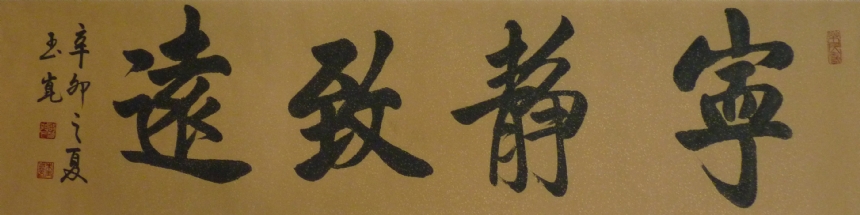 寧靜致遠
辛卯之夏
玉寬